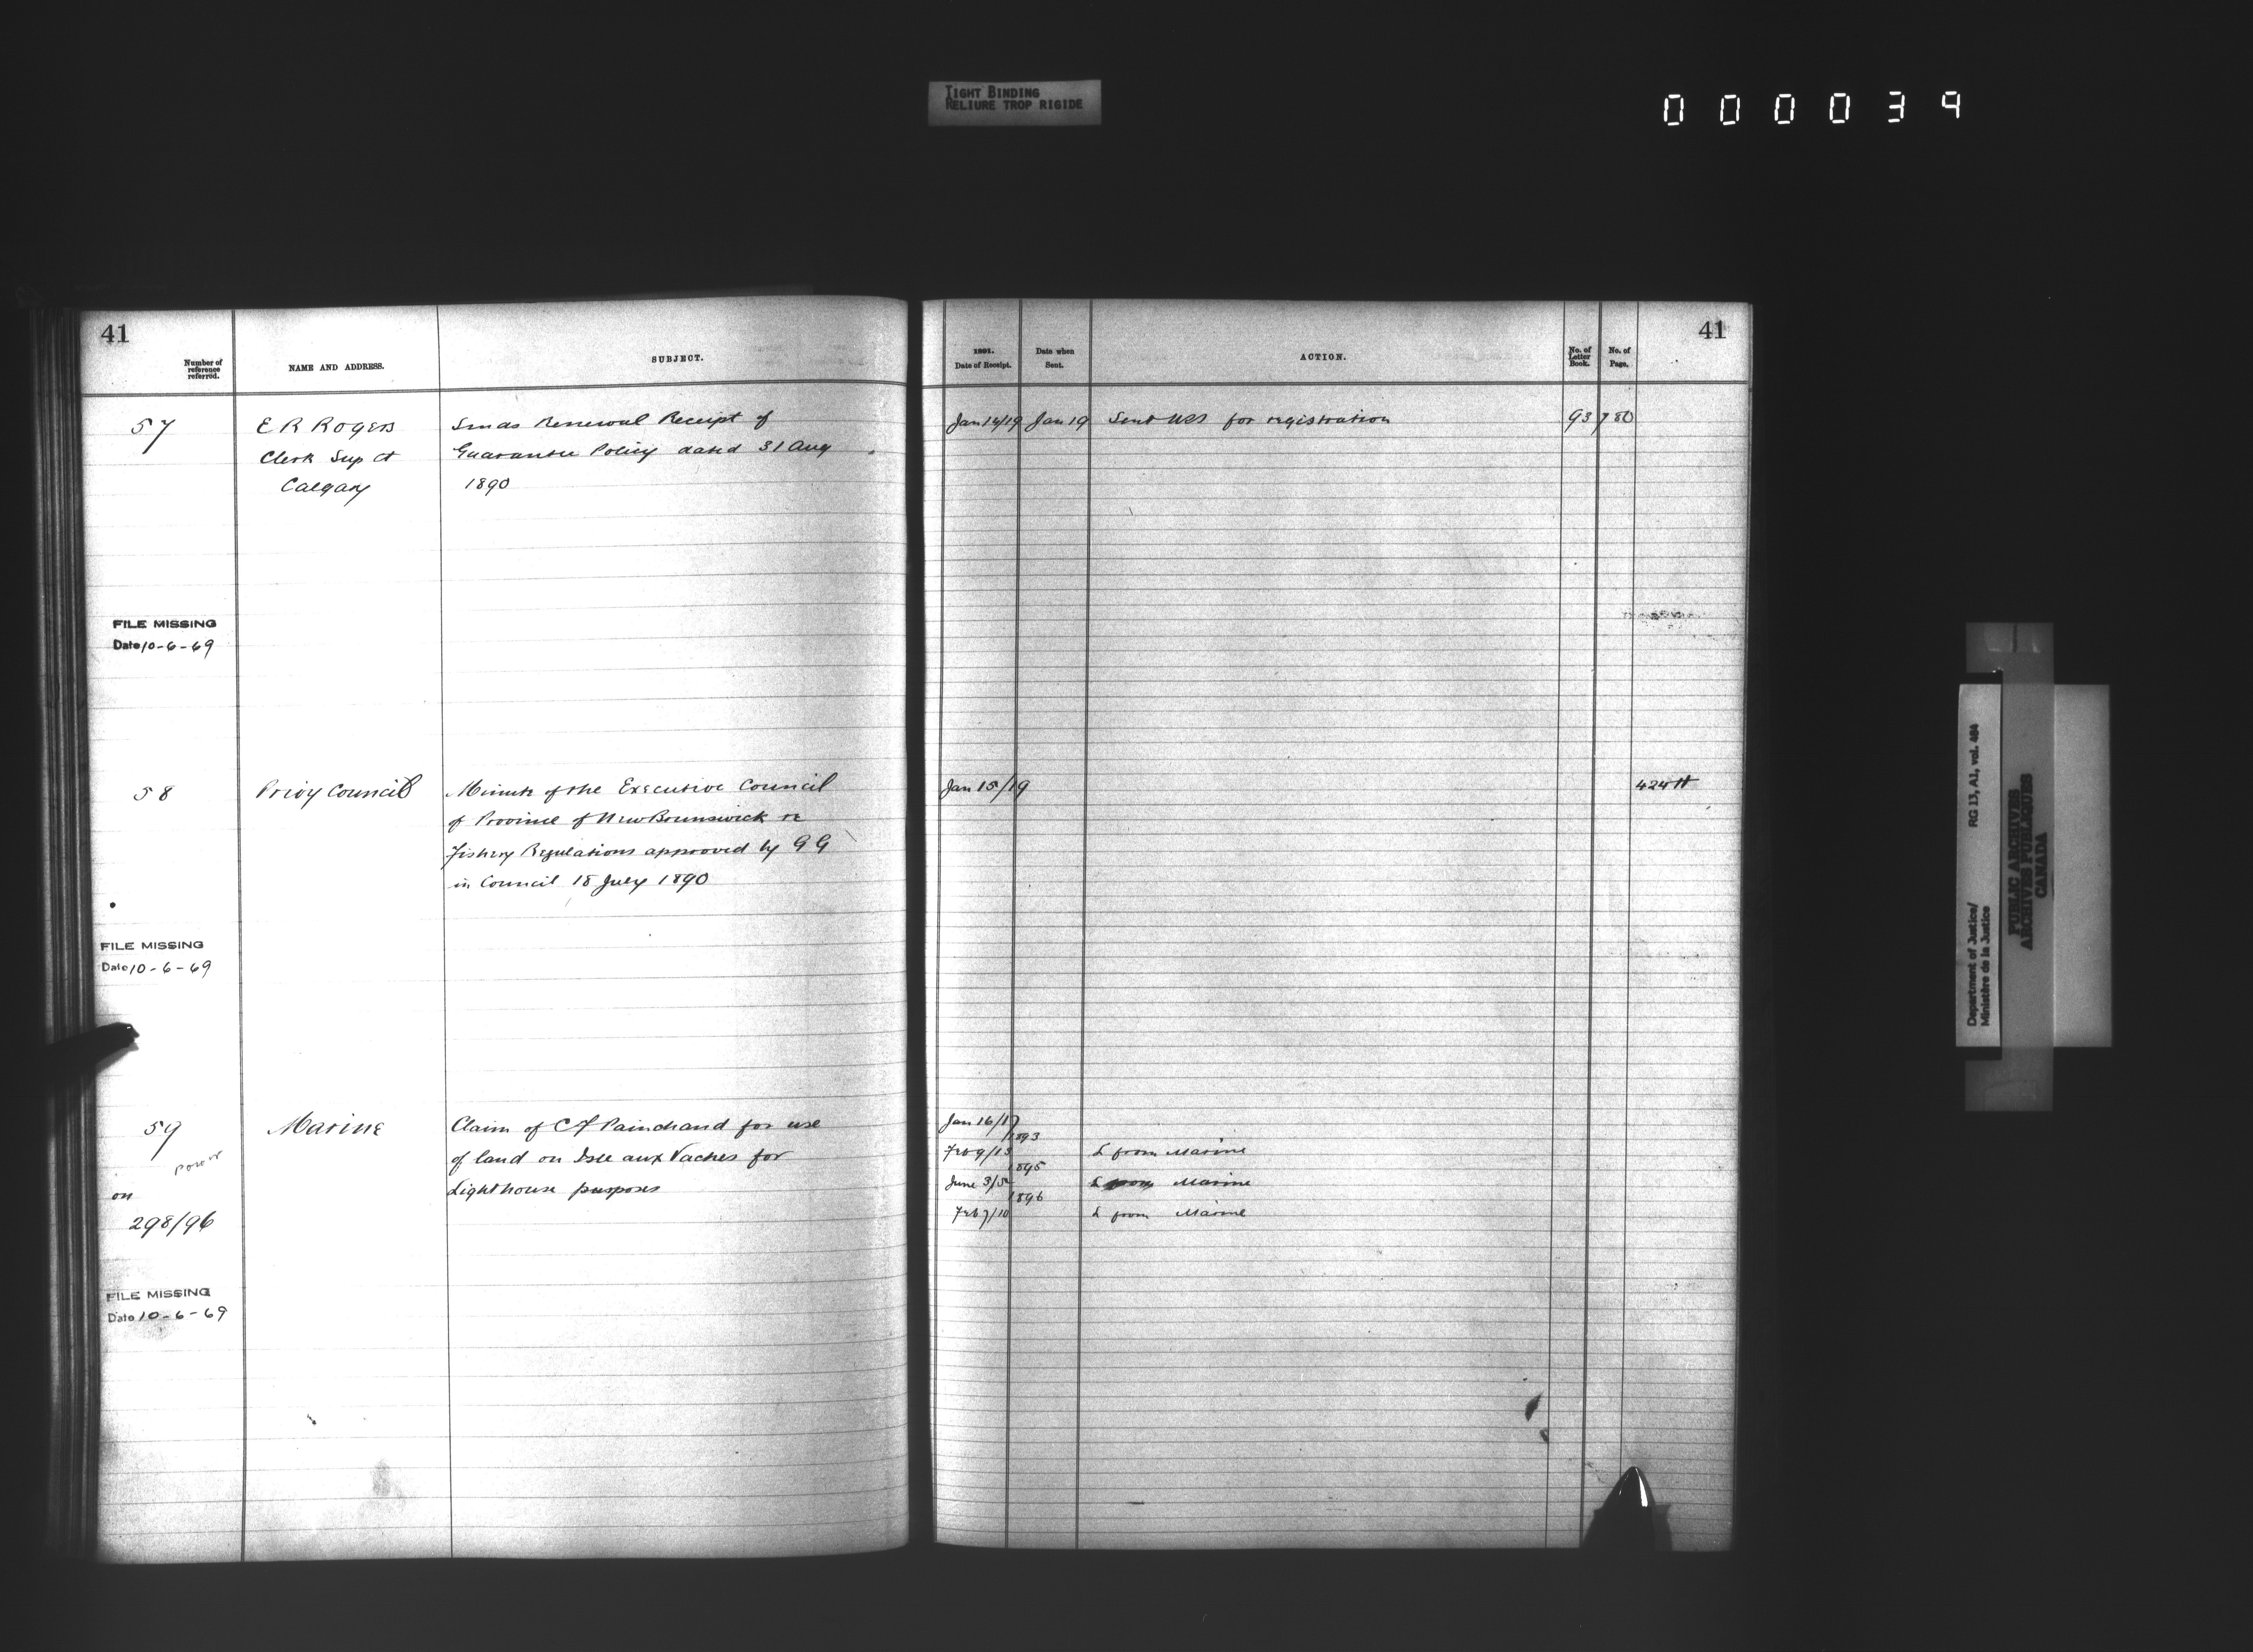 TIGHT BINDING
RELIURE TROP RIGIDE
000039
41
Number of
reference
referred.
NAME AND ADDRESS.
SUBJECT.
57
E R Rogers
Clerk Sup Ct
Calgary
Sends Renewal Receipt of
Guarantee Policy dated 31 Aug
1890
FILE MISSING
Date 10-6-69
58
Privy Council
Minute of the Executive Council
of Province of New Brunswick re
Fishery Regulations approved by G G
in Council 18 July 1890
FILE MISSING
Date 10-6-69
59
on
298/96
Marine
Claim of C F Painchaud for use
of land on Isle aux Vaches for
Lighthouse purposes
FILE MISSING
Date 10-6-69
41
1891.
Date of Receipt.
Date when
Sent.
ACTION.
No. of
Letter
Book.
No. of
Page.
Jan 14/19 Jan 19 Sent for registration 93 780
Jan 15/19 424 H
Jan 16/17
1893
Feb 9/13 L from Marine
1895
June 3/5 L from Marine
1896
Feb 7/10 L from Marine
Department of Justice/ RG 13, A1, vol. 484
Ministère de la Justice
PUBLIC ARCHIVES
ARCHIVES PUBLIQUES
CANADA